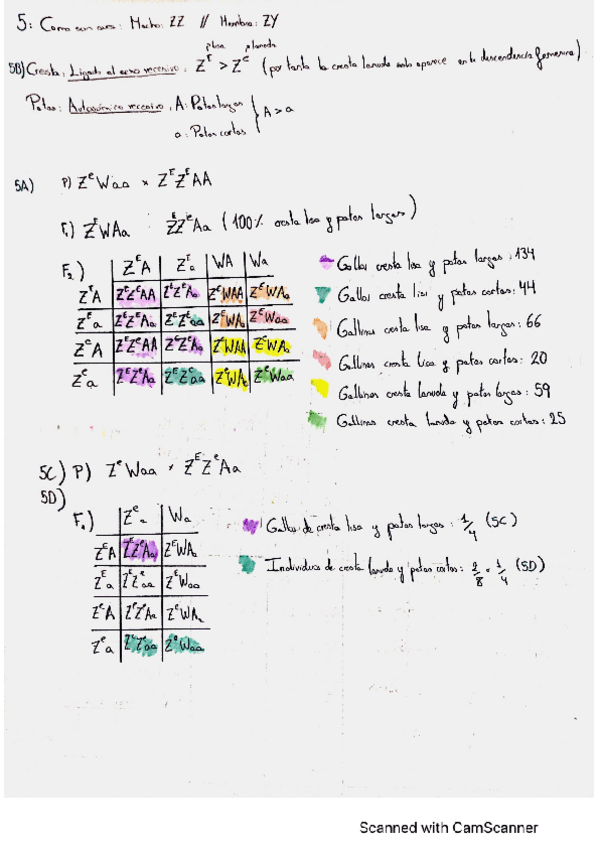 5: Como son aves: Macho: ZZ // Hembra: ZY
lisa lanuda
5B) Cresta: Ligado al sexo recesivo. Z^E > Z^e (por tanto la cresta lanuda solo aparece en la descendencia femenina)
Patas: Autosómico recesivo, A: Patas largas
a: Patas cortas } A > a
5A) P) Z^e W aa × Z^E Z^E AA
F1) Z^E W Aa Z^E Z^e Aa (100% cresta lisa y patas largas)
F2) Z^E A Z^E a WA Wa
Z^E A Z^E Z^E AA Z^E Z^E Aa Z^E WAA Z^E WAa
Z^E a Z^E Z^E Aa Z^E Z^E aa Z^E WAa Z^E Waa
Z^e A Z^E Z^e AA Z^E Z^e Aa Z^e WAA Z^e WAa
Z^e a Z^E Z^e Aa Z^E Z^e aa Z^e WAa Z^e Waa
Gallos cresta lisa y patas largas: 134
Gallos cresta lisa y patas cortas: 44
Gallinas cresta lisa y patas largas: 66
Gallinas cresta lisa y patas cortas: 20
Gallinas cresta lanuda y patas largas: 59
Gallinas cresta lanuda y patas cortas: 25
5C) P) Z^e Waa × Z^E Z^e Aa
5D)
F1) Z^e a Wa
Z^E A Z^E Z^e Aa Z^E WAa
Z^E a Z^E Z^e aa Z^E Waa
Z^e A Z^e Z^e Aa Z^e WAa
Z^e a Z^e Z^e aa Z^e Waa
Gallos de cresta lisa y patas largas: 1/4 (5C)
Individuos de cresta lanuda y patas cortas: 2/8 = 1/4 (5D)
Scanned with CamScanner